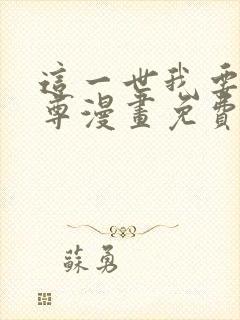 這一世我要
尊漫畫免費
蘇勇